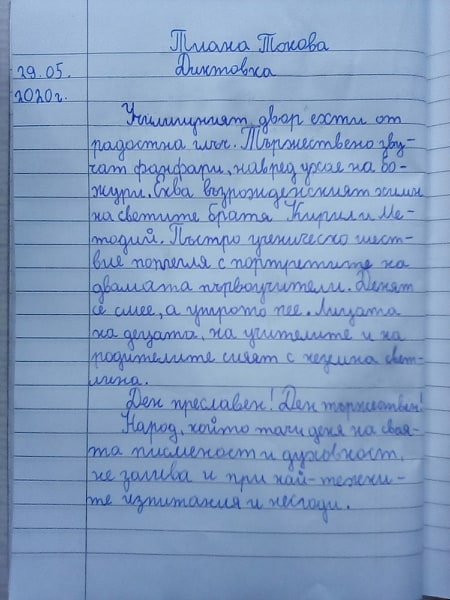 Тиана Токова
29.05.
2020г.
Диктовка
Училищният двор ехти от
радостна глъч. Тържествено зву-
чат фанфари, навред ухае на бо-
жури. Еква възрожденският химн
на светите братя Кирил и Ме-
тодий. Пъстро ученическо шест-
вие поппегля с портретите на
двамата първоучители. Денят
се смее, а утрото пее. Лицата
на децата, на учителите и на
родителите сияят с неземна свет-
лина.
Ден преславен! Ден тържествен!
Народ, който тачи деня на своя-
та писменост и духовност,
не залива и при най-тежки-
те изпитания и несгоди.